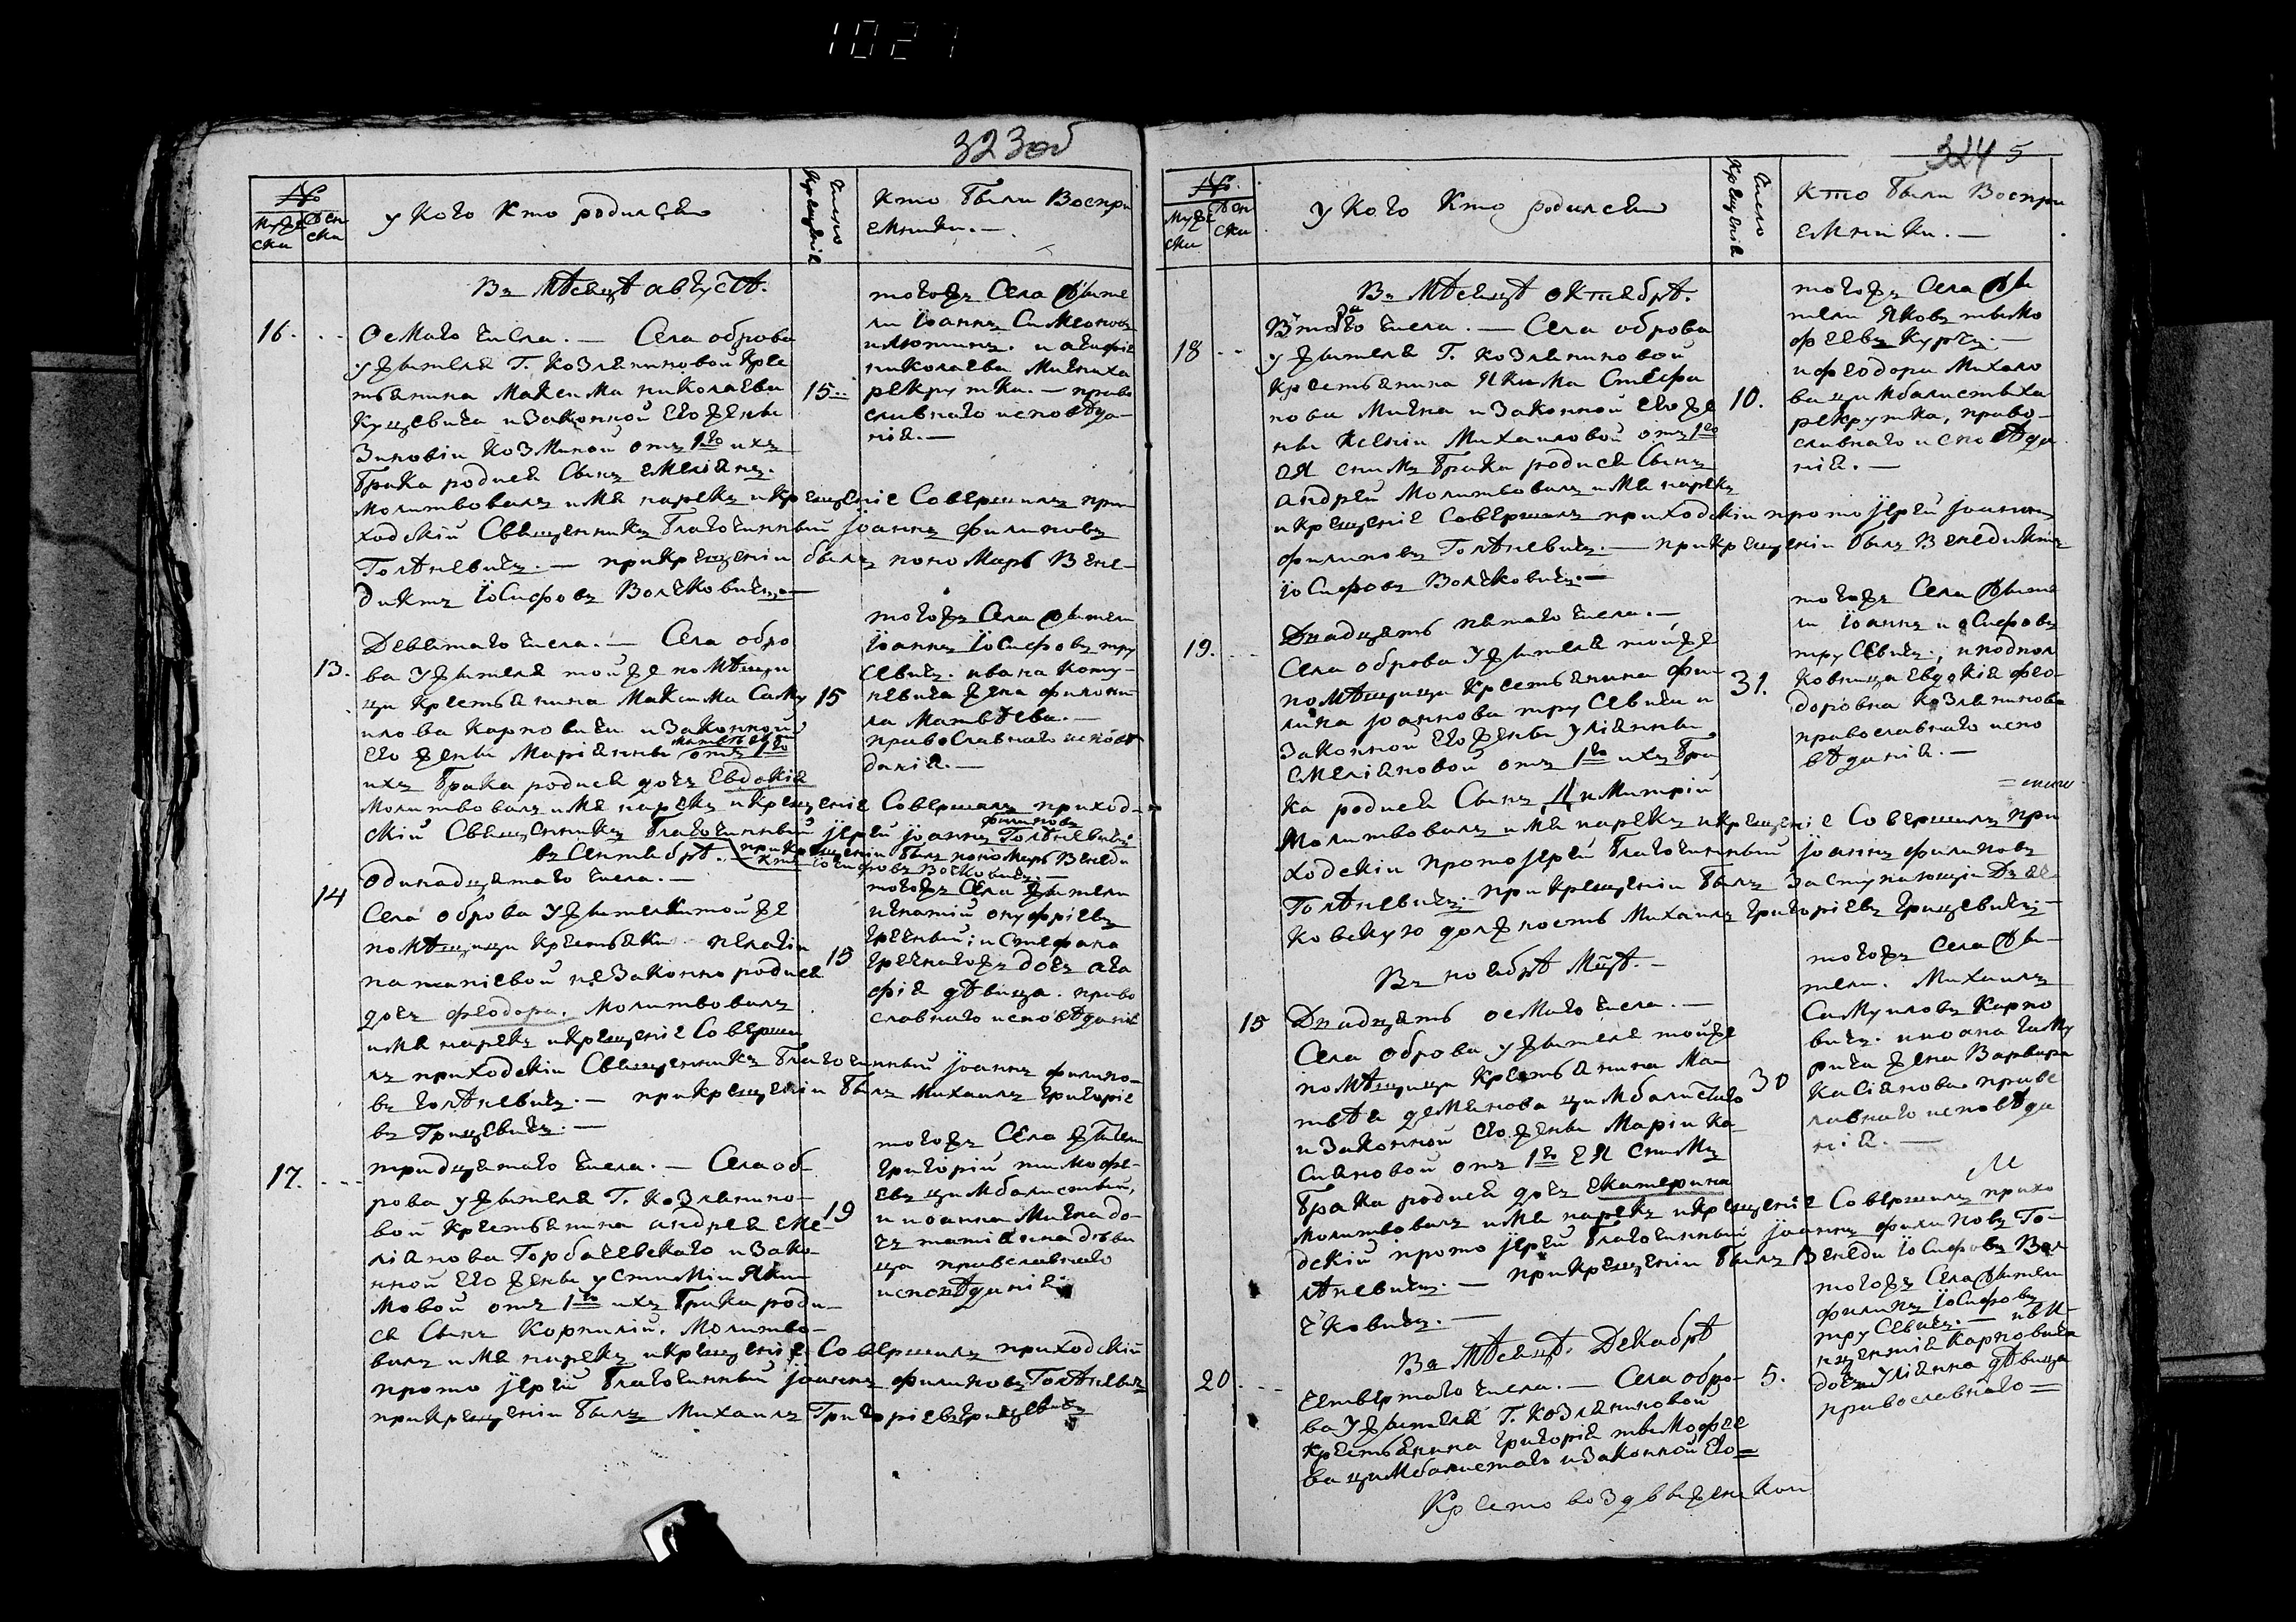 1027
323об
№
Муже
ски
Жен
ски
у кого кто родился
Число
Крещенія
Кто были Воспри
емники. —
Въ Мѣсяцѣ августѣ.
16.
Осмаго числа. — Села оброва
у жителя Г. Козляниновой крес
тьянина Максима николаева
Куцевича и Законной его жены
Зиновіи Козминой отъ 1го ихъ
брака родися Сынъ Емеліянъ.
Молитвовалъ имя нарекъ и крещеніе Совершилъ при
ходскій Священникъ благочинный Іоаннъ филиповъ
Голѣневичъ. — при крещеніи былъ пономарь Вене
диктъ Іосифовъ Волчковичъ. —
15
тогожъ Села жите
ли Іоаннъ Симеоновъ
и агафія
николаева
рекрутка. — право
славнаго исповѣда
нія. —
13.
Девятаго числа. — Села обро
ва у жителя тойже помѣщи
ци крестьянина Максима Саму
илова Карповича и Законной
его жены Маріанны отъ 1го
ихъ брака родися дочь Евдокія
Молитвовалъ имя нарекъ и крещеніе Совершилъ приход
скій Священникъ благочинный Іерей Іоаннъ филиповъ Голѣневичъ
при крещеніи былъ пономарь Венеди
ктъ Іосифовъ Волчковичъ. —
15
тогожъ Села жители
Іоаннъ Іосифовъ тру
севичъ. ивана
жена
ла Матвѣева. —
православнаго исповѣ
данія. —
въ Сентябрѣ.
14
Одинадцятаго числа. —
Села оброва у жителки тойже
помѣщици крестьянки пелагіи
незаконно родися
дочь феодора. Молитвовалъ
имя нарекъ и крещеніе Соверши
лъ приходскій Священникъ благочинный Іоаннъ филипо
въ Голѣневичъ. — при крещеніи былъ Михаилъ григоріе
въ Грицевичъ. —
15
тогожъ Села жители
игнатій онуфріевъ
и Стефана
дочь ага
фія дѣвица. право
славнаго исповѣданія
17.
тридцятаго числа. — Села об
рова у жителя Г. Козлянино
вой крестьянина андрея Еме
ліянова Горбачевскаго и Зако
нной его жены устиміи Яки
мовой отъ 1го ихъ брака роди
ся Сынъ Корнилій. Молитво
валъ имя нарекъ и крещеніе Совершилъ приходскій
протоіерей благочинный Іоаннъ филиповъ Голѣневичъ
при крещеніи былъ Михаилъ Григоріевъ грицевичъ
19
тогожъ Села жители
григорій тимофе
евъ цимбалистый,
и иоанна Мична до
чь татіянна дѣви
ца православнаго
исповѣданія
324 5
№
Муже
ски
Жен
ски
у кого кто родился
Число
Крещенія
Кто были Воспри
емники. —
Въ Мѣсяцѣ октябрѣ.
18
Втораго числа. — Села оброва
у жителя Г. Козляниновой
крестьянина Якима Стефа
нова Мична и Законной его же
ны Ксеніи Михаиловой отъ 1го
ея съ нимъ брака родися Сынъ
андрей Молитвовалъ имя нарекъ
и крещеніе Совершилъ приходскій протоіерей Іоаннъ
филиповъ Голѣневичъ. — при крещеніи былъ Венедиктъ
Іосифовъ Волчковичъ. —
10.
тогожъ Села жи
тели Яковъ тимо
феевъ
и феодора Михаило
ва цимбалистиха
рекрутка, право
славнаго исповѣда
нія. —
19.
Двадцять пятаго числа. —
Села оброва у жителя тойже
помѣщици крестьянина фи
липа Іоаннова трусевича и
законной его жены уліянны
Емеліяновой отъ 1го ихъ бра
ка родися Сынъ Димитрій
Молитвовалъ имя нарекъ и крещеніе Совершилъ при
ходскій протоіерей благочинный Іоаннъ филиповъ
Голѣневичъ. при крещеніи былъ заступающій Дьяч
ковскую должность Михаилъ григоріевъ грицевичъ. —
31.
тогожъ Села жите
ли Іоаннъ иосифовъ
трусевичъ, и подпол
ковница Евдокія фео
доровна Козлянинова
православнаго испо
вѣданія. —
Въ ноябрѣ Мцѣ. —
15
Двадцять осмаго числа. —
Села оброва у жителя тойже
помѣщици крестьянина Ма
твѣя демянова цимбалистаго
и Законной его жены Маріи Ка
сіяновой отъ 1го ея съ нимъ
брака родися дочь екатерина
Молитвовалъ имя нарекъ и крещеніе Совершилъ прихо
дскій протоіерей благочинный Іоаннъ филиповъ Го
лѣневичъ. — при крещеніи былъ Венеди Іосифовъ Вол
чковичъ. —
30
тогожъ Села жи
тели. Михаилъ
Самуиловъ Карпо
вичъ. и иоана
жена Варвара
Касіянова правос
лавнаго исповѣда
нія. —
Въ Мѣсяцѣ Декабрѣ
20
Четвертаго числа. — Села обро
ва у жителя Г. Козляниновой
крестьянина григорія тимофее
ва цимбалистаго и законной его =
5.
тогожъ Села жители
филипъ Іосифовъ
трусевичъ. —
Карповича
дочь Уліянна дѣвица
православнаго =
Крестовоздвиженской